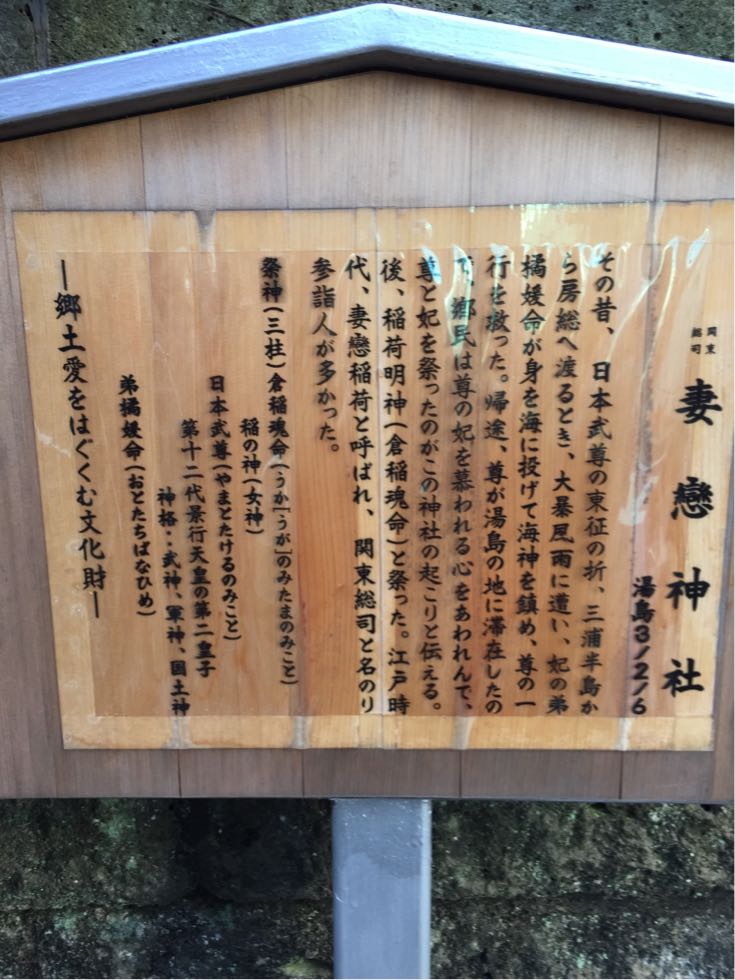 関東
総司
妻戀神社
湯島3/2/6
その昔、日本武尊の東征の折、三浦半島か
ら房総へ渡るとき、大暴風雨に遭い、妃の弟
橘媛命が身を海に投げて海神を鎮め、尊の一
行を救った。帰途、尊が湯島の地に滞在したの
で、郷民は尊の妃を慕われる心をあわれんで、
尊と妃を祭ったのがこの神社の起こりと伝える。
後、稲荷明神(倉稲魂命)と祭った。江戸時
代、妻戀稲荷と呼ばれ、関東総司と名のり
参詣人が多かった。
祭神(三柱)倉稲魂命(うか[うが]のみたまのみこと)
稲の神(女神)
日本武尊(やまとたけるのみこと)
第十二代景行天皇の第二皇子
神格‥武神、軍神、国土神
弟橘媛命(おとたちばなひめ)
―郷土愛をはぐくむ文化財―